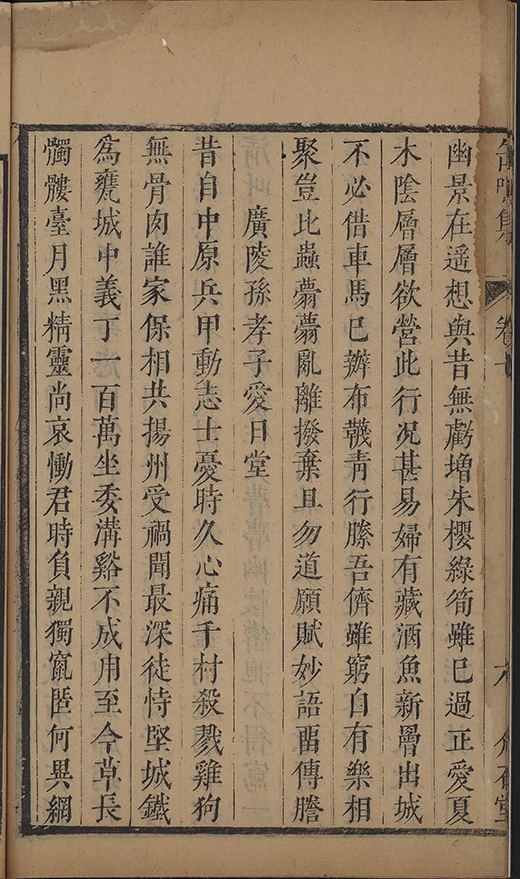 集 卷
幽景在遥想與昔無虧增朱櫻綠筍雖已過正愛夏
木陰層層欲營此行况甚易婦有藏酒魚新罾出城
不必借車馬已辦布韈靑行縢吾儕雖窮自有樂相
聚豈比蟲薨薨亂離撥棄且勿道願賦妙語畱傳謄
廣陵孫孝子愛日堂
昔自中原兵甲動志士憂時久心痛千村殺戮雞狗
無骨肉誰家保相共揚州受禍聞最深徒恃堅城鐵
爲甕城中義丁一百萬坐委溝谿不成用至今草長
髑髏臺月黑精靈尚哀慟君時負親獨竄匿何異網